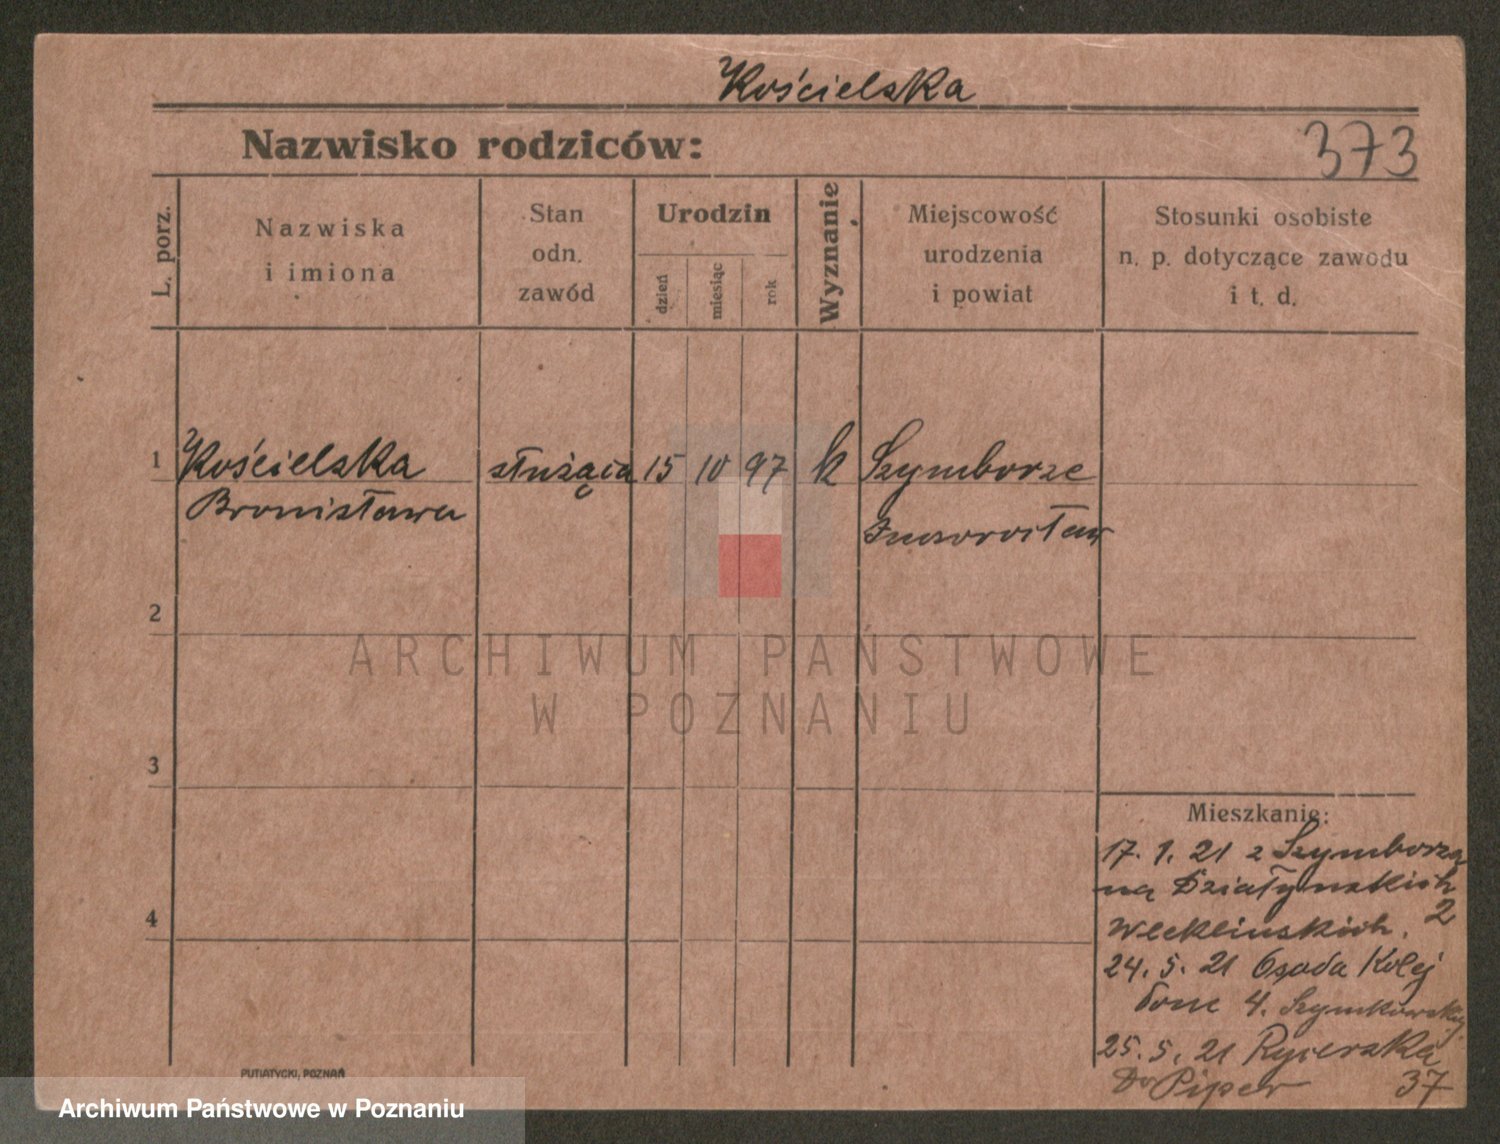 Kościelska
Nazwisko rodziców:
373
L. porz.
Nazwiska
i imiona
Stan
odn.
zawód
Urodzin
dzień
miesiąc
rok
Wyznanie
Miejscowość
urodzenia
i powiat
Stosunki osobiste
n. p. dotyczące zawodu
i t. d.
1 Kościelska służąca 15 10 97 k Szymborze
Bronisława Inowrocław
2
3
4
Mieszkanie:
17. 1. 21 z Szymborza
na Działyńskich
2
24. 5. 21 Osada Kolej
4. Szymkowska
25. 5. 21 Rycerska
Dr Piper 37
PUTIATYCKI, POZNAŃ
ARCHIWUM PAŃSTWOWE
W POZNANIU
Archiwum Państwowe w Poznaniu